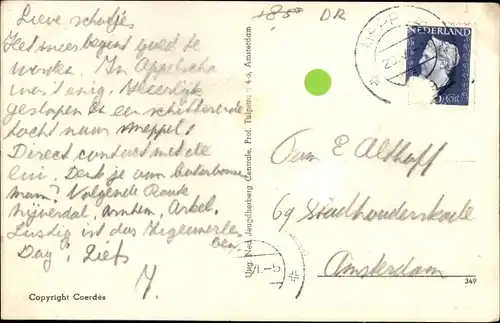 Lieve schatje,
Het weer begint goed te
worden. In Appelscha
was 't enig. Heerlijk
geslapen en een schitterende
tocht naar Meppel.
Direct contact met de
lui. Denk je om boterbonnen
man? Volgende
Nijverdal, Arnhem, Arkel.
Lustig ist das Zigeunerle-
ben.
Dag! Liefs
Y.
Copyright Coerdès
Uitg. Ned. Jeugdherberg Centrale, Prof. Tulpstr. 4-6, Amsterdam
+8.50 DR
MEPP
NEDERLAND
Aan E Althoff
69 Stadhouderskade
Amsterdam
349